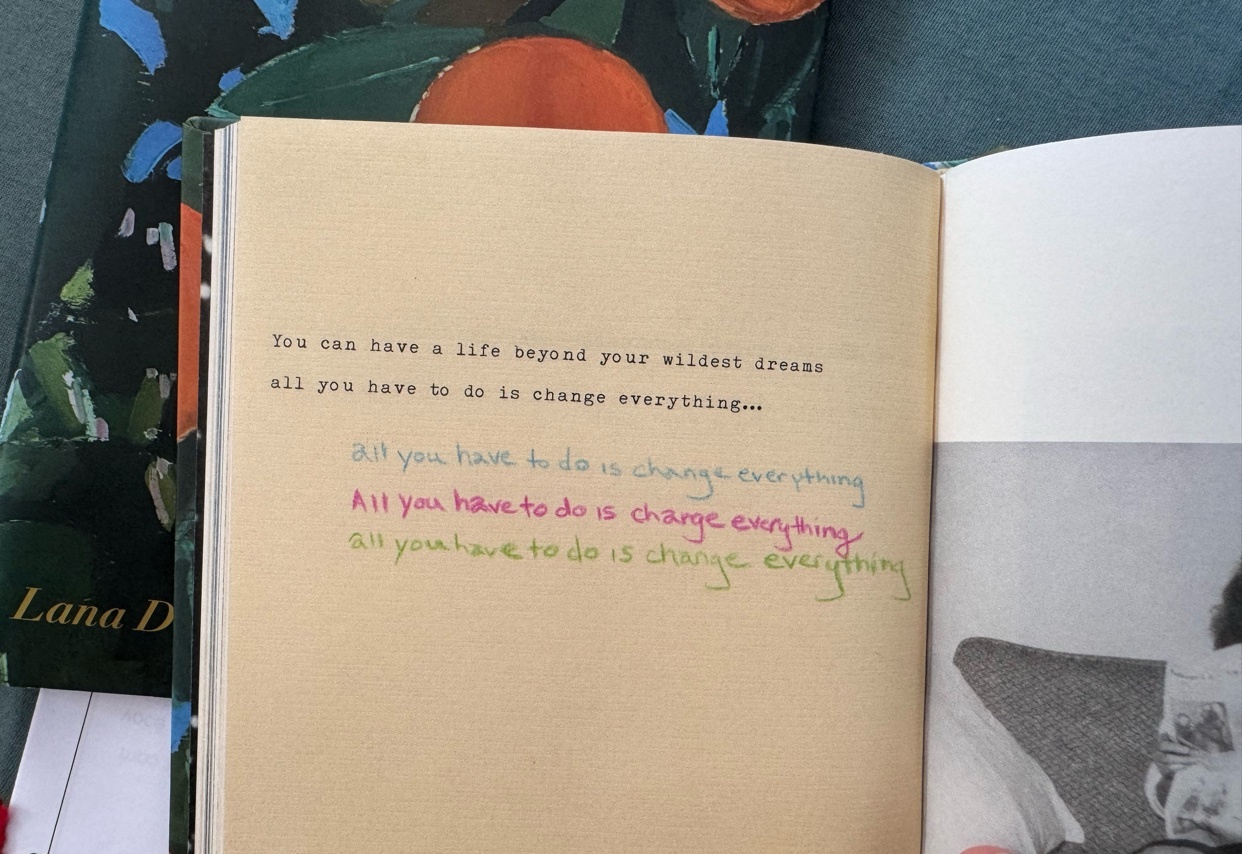 You can have a life beyond your wildest dreams
all you have to do is change everything...
all you have to do is change everything
All you have to do is change everything
all you have to do is change everything
Lana D